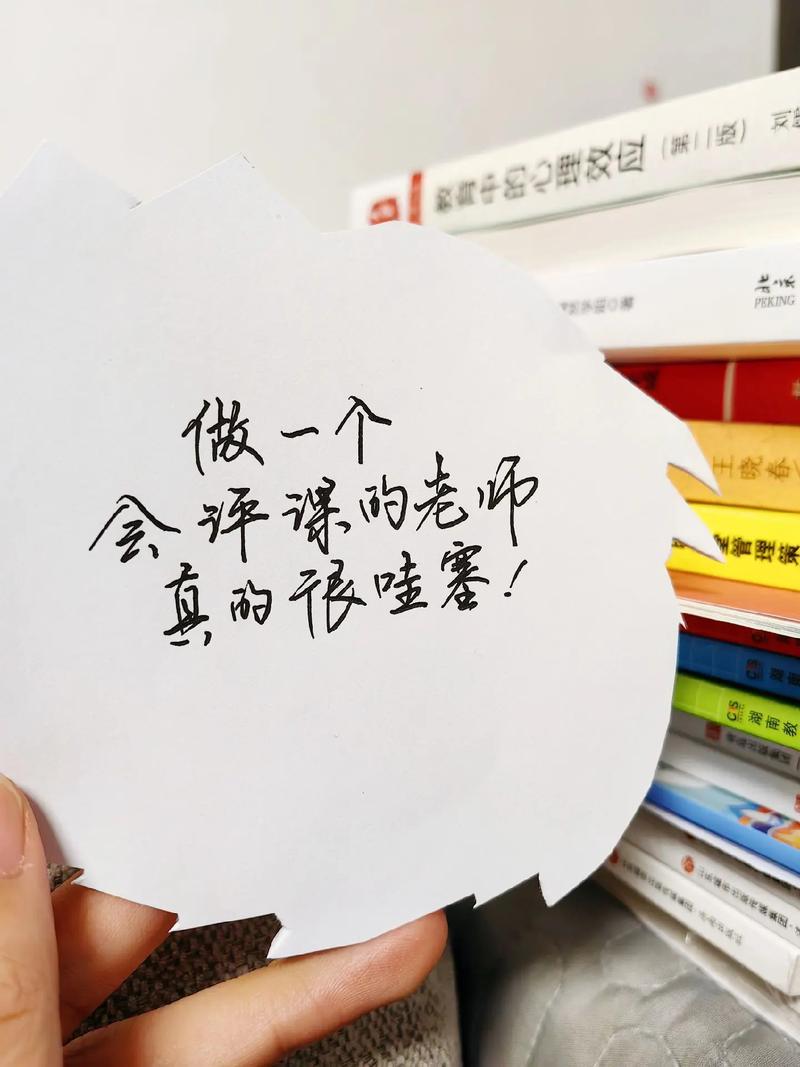 做一个
会评课的老师
真的很哇塞！
教育中的心理效应（第二版）
北京
PEKING
王晓春
管理策
湖南教